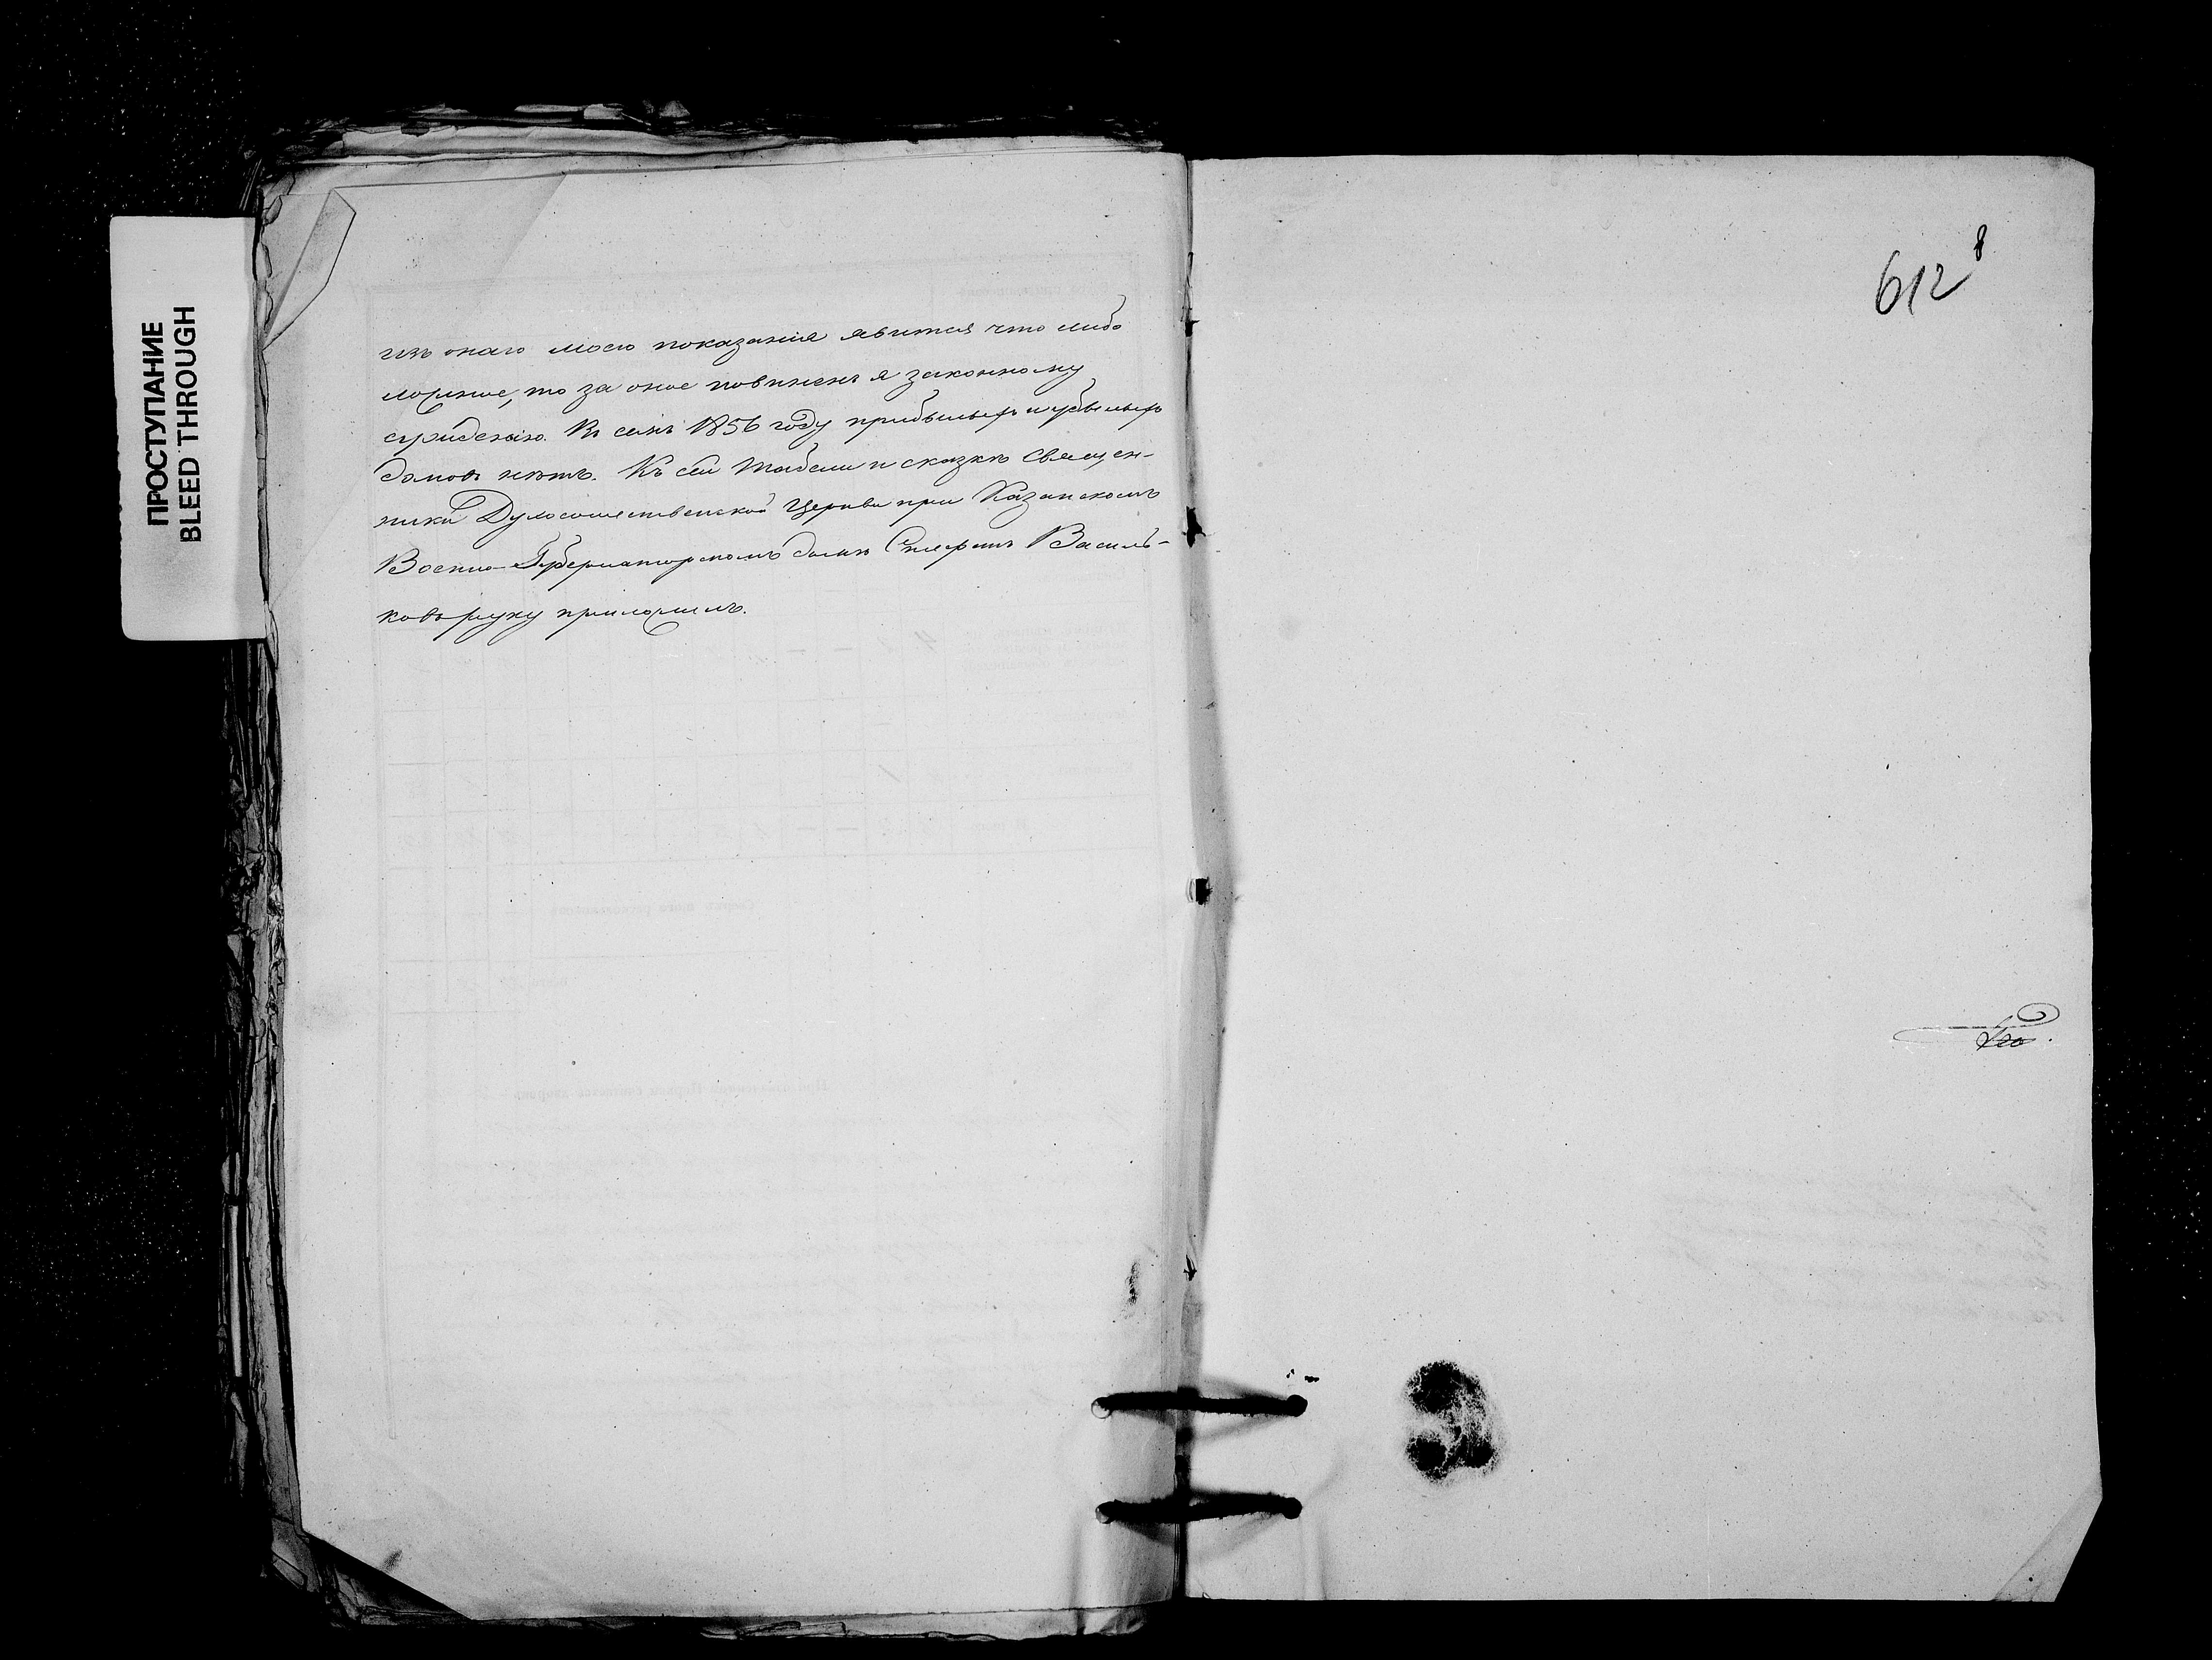 ПРОСТУПАНИЕ
BLEED THROUGH
изъ онаго моего показанія явится что либо
ложное, то за оное повиненъ я законному
сужденію. Въ семъ 1856 году прибылыхъ и убылыхъ
домовъ нѣтъ. Къ сей табели и сказкѣ Священ-
никъ Духосошественской Церкви при Казанскомъ
Военно-Губернаторскомъ домѣ Василь-
ковъ руку приложилъ.
612
8